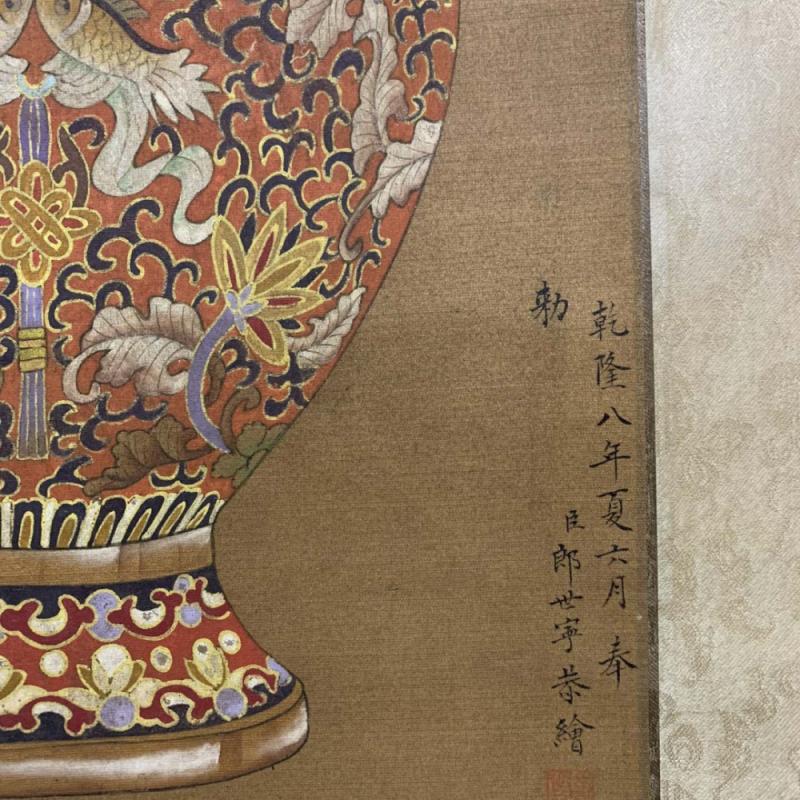 乾隆八年夏六月奉
勅
臣郎世寧恭繪